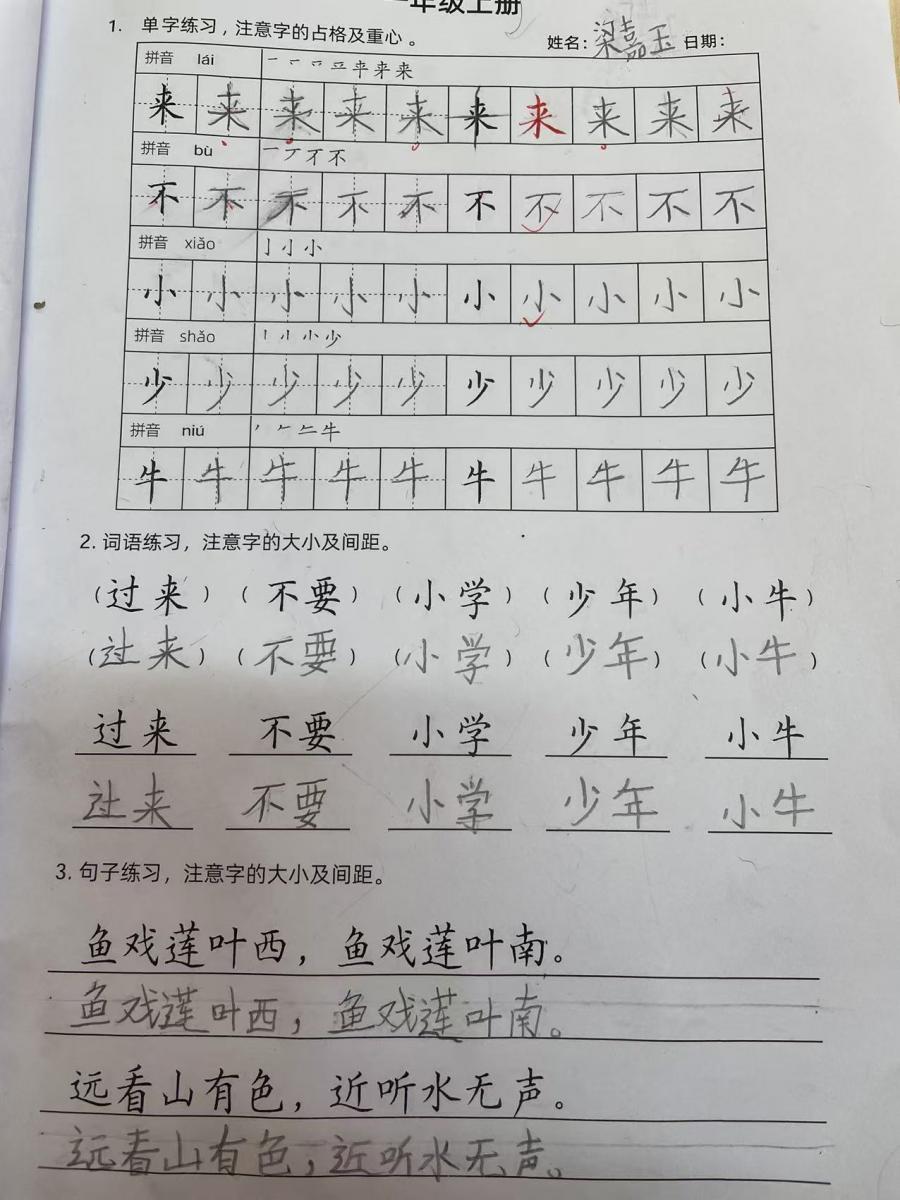 一年级上册
1. 单字练习，注意字的占格及重心。
姓名：梁嘉玉 日期：
拼音 lái
来 来 来 来 来 来 来 来 来 来
拼音 bù 一 丆 不 不
不 不 不 不 不 不 不 不 不 不
拼音 xiǎo 亅 小 小
小 小 小 小 小 小 小 小 小 小
拼音 shǎo 丨 小 少
少 少 少 少 少 少 少 少 少 少
拼音 niú 牛
牛 牛 牛 牛 牛 牛 牛 牛 牛 牛
2. 词语练习，注意字的大小及间距。
（过来）（不要）（小学）（少年）（小牛）
（过来）（不要）（小学）（少年）（小牛）
过来 不要 小学 少年 小牛
过来 不要 小学 少年 小牛
3. 句子练习，注意字的大小及间距。
鱼戏莲叶西，鱼戏莲叶南。
鱼戏莲叶西，鱼戏莲叶南。
远看山有色，近听水无声。
远看山有色，近听水无声。